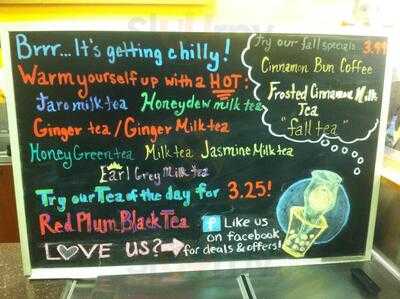 Brrr... It's getting chilly!
Warm yourself up with a HOT:
Taro milk tea Honeydew milk tea
Ginger tea / Ginger Milk tea
Honey Green tea Milk tea Jasmine Milk tea
Earl Grey Milk tea
Try our Tea of the day for 3.25!
Red Plum Black Tea
LOVE US?
f Like us
on facebook
for deals & offers!
Try our fall specials 3.99
Cinnamon Bun Coffee
Frosted Cinnamon Milk
Tea
"fall tea"